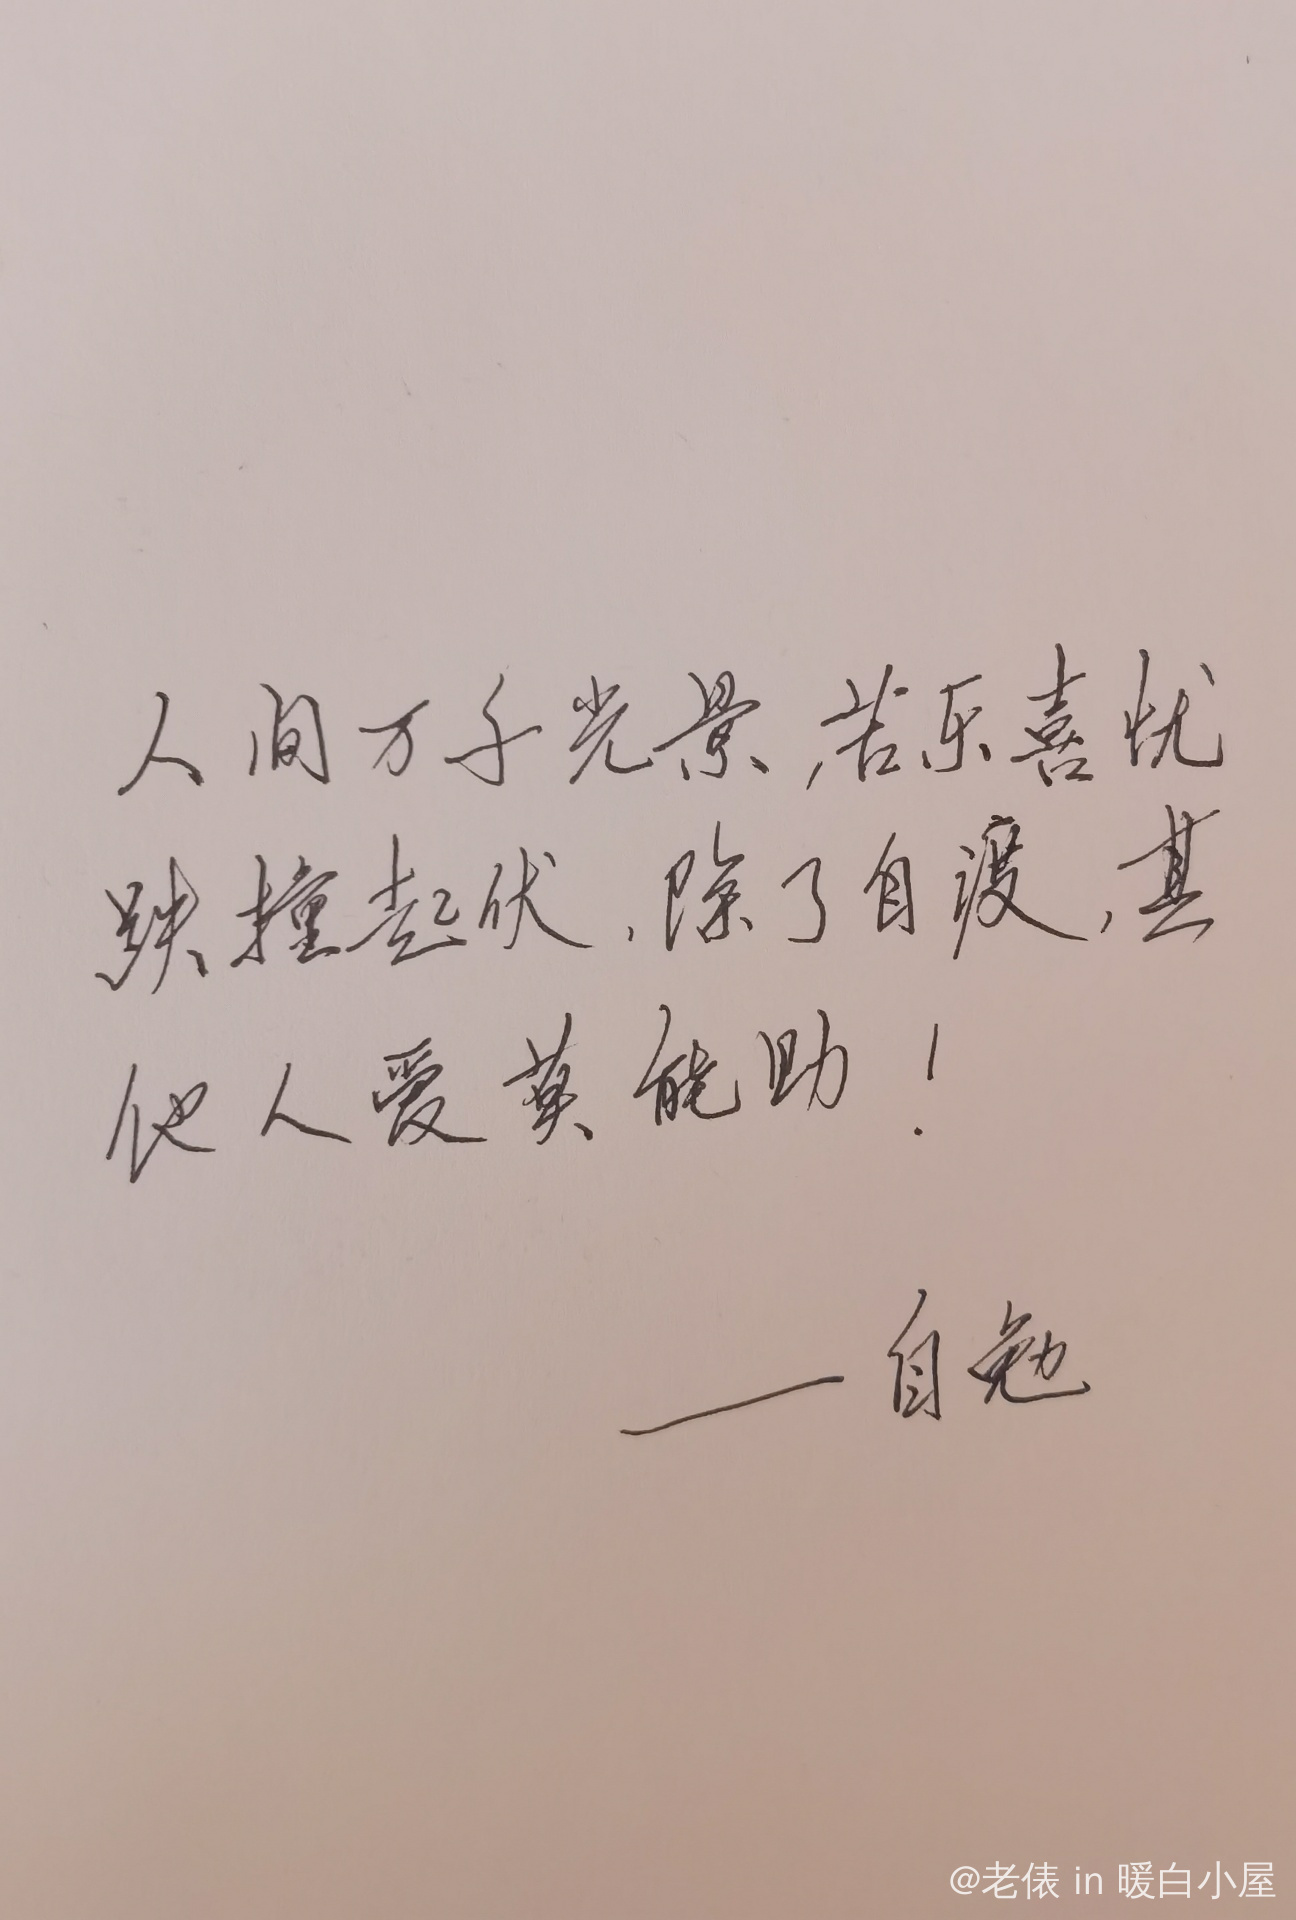 人间万千光景,苦乐喜忧
跌撞起伏,除了自渡,其
他人爱莫能助!
——自勉
@老俵 in 暖白小屋